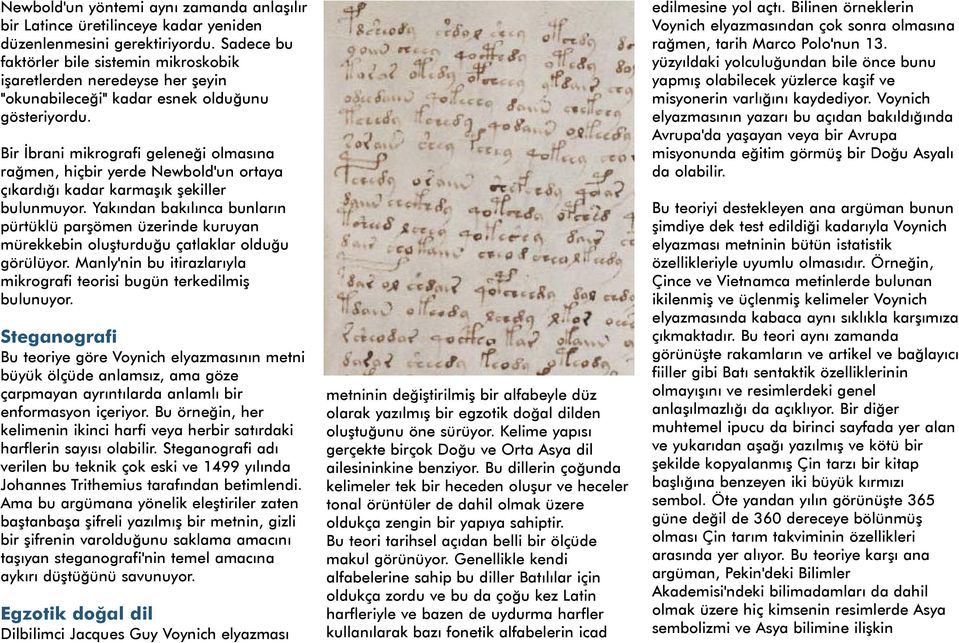 Newbold'un yöntemi aynı zamanda anlaşılır
bir Latince üretilinceye kadar yeniden
düzenlenmesini gerektiriyordu. Sadece bu
faktörler bile sistemin mikroskobik
işaretlerden neredeyse her şeyin
"okunabileceği" kadar esnek olduğunu
gösteriyordu.
Bir İbrani mikrografi geleneği olmasına
rağmen, hiçbir yerde Newbold'un ortaya
çıkardığı kadar karmaşık şekiller
bulunmuyor. Yakından bakılınca bunların
pürtüklü parşömen üzerinde kuruyan
mürekkebin oluşturduğu çatlaklar olduğu
görülüyor. Manly'nin bu itirazlarıyla
mikrografi teorisi bugün terkedilmiş
bulunuyor.
Steganografi
Bu teoriye göre Voynich elyazmasının metni
büyük ölçüde anlamsız, ama göze
çarpmayan ayrıntılarda anlamlı bir
enformasyon içeriyor. Bu örneğin, her
kelimenin ikinci harfi veya herbir satırdaki
harflerin sayısı olabilir. Steganografi adı
verilen bu teknik çok eski ve 1499 yılında
Johannes Trithemius tarafından betimlendi.
Ama bu argümana yönelik eleştiriler zaten
baştanbaşa şifreli yazılmış bir metnin, gizli
bir şifrenin varolduğunu saklama amacını
taşıyan steganografi'nin temel amacına
aykırı düştüğünü savunuyor.
Egzotik doğal dil
Dilbilimci Jacques Guy Voynich elyazması
metninin değiştirilmiş bir alfabeyle düz
olarak yazılmış bir egzotik doğal dilden
oluştuğunu öne sürüyor. Kelime yapısı
gerçekte birçok Doğu ve Orta Asya dil
ailesininkine benziyor. Bu dillerin çoğunda
kelimeler tek bir heceden oluşur ve heceler
tonal örüntüler de dahil olmak üzere
oldukça zengin bir yapıya sahiptir.
Bu teori tarihsel açıdan belli bir ölçüde
makul görünüyor. Genellikle kendi
alfabelerine sahip bu diller Batılılar için
oldukça zordu ve bu da çoğu kez Latin
harfleriyle ve bazen de uydurma harfler
kullanılarak bazı fonetik alfabelerin icad
edilmesine yol açtı. Bilinen örneklerin
Voynich elyazmasından çok sonra olmasına
rağmen, tarih Marco Polo'nun 13.
yüzyıldaki yolculuğundan bile önce bunu
yapmış olabilecek yüzlerce kaşif ve
misyonerin varlığını kaydediyor. Voynich
elyazmasının yazarı bu açıdan bakıldığında
Avrupa'da yaşayan veya bir Avrupa
misyonunda eğitim görmüş bir Doğu Asyalı
da olabilir.
Bu teoriyi destekleyen ana argüman bunun
şimdiye dek test edildiği kadarıyla Voynich
elyazması metninin bütün istatistik
özellikleriyle uyumlu olmasıdır. Örneğin,
Çince ve Vietnamca metinlerde bulunan
ikilenmiş ve üçlenmiş kelimeler Voynich
elyazmasında kabaca aynı sıklıkla karşımıza
çıkmaktadır. Bu teori aynı zamanda
görünüşte rakamların ve artikel ve bağlayıcı
fiiller gibi Batı sentaktik özelliklerinin
olmayışını ve resimlerdeki genel
anlaşılmazlığı da açıklıyor. Bir diğer
muhtemel ipucu da birinci sayfada yer alan
ve yukarıdan aşağı yazılmış ve kötü bir
şekilde kopyalanmış Çin tarzı bir kitap
başlığına benzeyen iki büyük kırmızı
sembol. Öte yandan yılın görünüşte 365
güne değil de 360 dereceye bölünmüş
olması Çin tarım takviminin özellikleri
arasında yer alıyor. Bu teoriye karşı ana
argüman, Pekin'deki Bilimler
Akademisi'ndeki bilimadamları da dahil
olmak üzere hiç kimsenin resimlerde Asya
sembolizmi veya Asya bilimine ilişkin